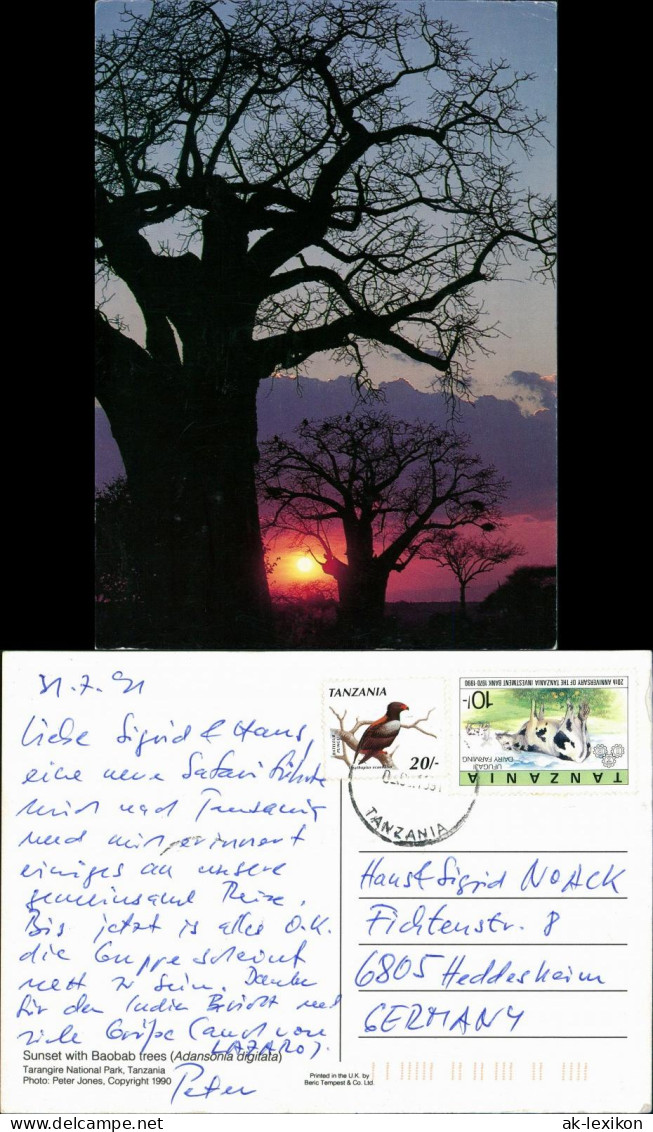 31.7.91
Liebe Sigrid & Hans,
eine neue Safari führte
mich nach Tansania
und mich erinnert
einiges an unsere
gemeinsame Reise.
Bis jetzt is alles O.K.
die Gruppe scheint
nett zu sein. Danke
für den Indien Bericht und
viele Grüße (auch von
LAZARO).
Peter
TANZANIA
20/-
20th ANNIVERSARY OF THE TANZANIA INVESTMENT BANK 1970 1990
10/-
UFUGAJI
DAIRY FARMING
TANZANIA
TANZANIA
Hans & Sigrid NOACK
Fichtenstr. 8
6805 Heddesheim
GERMANY
Sunset with Baobab trees (Adansonia digitata)
Tarangire National Park, Tanzania
Photo: Peter Jones, Copyright 1990
Printed in the U.K. by
Beric Tempest & Co. Ltd.
ak-lexikon